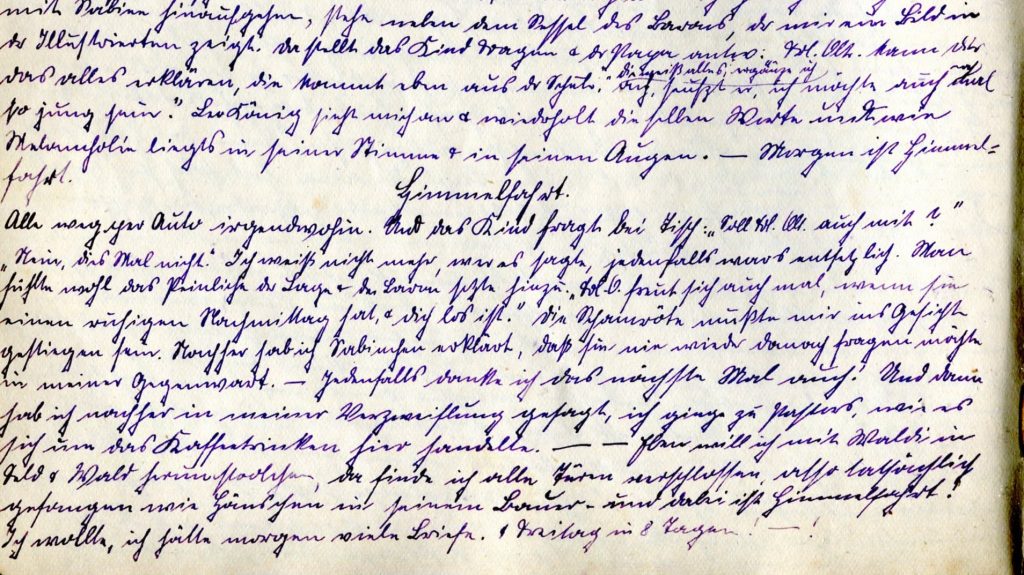 mit Sabine hinaufgehen, stehe neben dem Sessel des Barons, der mir ein Bild in
der Illustrierten zeigt. Da stellt das Kind Fragen & der Papa antw.: Frl. Olt. kann dir
das alles erklären, die kommt eben aus der Schule." die weiß alles, ergänze ich
"Ach, seufzt er, ich möchte auch noch mal
so jung sein". Leo König sieht mich an & wiederholt dieselben Worte und wie
Melancholie liegts in seiner Stimme & in seinen Augen. — Morgen ist Himmel=
fahrt.
Himmelfahrt.
Alle weg per Auto irgendwohin. Und das Kind fragt bei Tisch: „Soll Frl. Olt. auch mit?"
„Nein, dies Mal nicht." Ich weiß nicht mehr, wer es sagte, jedenfalls wars entsetzlich. Man
fühlte wohl das Peinliche der Lage & der Baron setzte hinzu: „Frl. O. freut sich auch mal, wenn sie
einen ruhigen Nachmittag hat, & dich los ist." Die Schamröte mußte mir ins Gesicht
gestiegen sein. Nachher hab ich Sabinchen erklärt, daß sie nie wieder danach fragen möchte
in meiner Gegenwart. — Jedenfalls danke ich das nächste Mal auch! Und dann
hab ich nachher in meiner Verzweiflung gesagt, ich ginge zu Pastors, wie es
sich um das Kaffeetrinken hier handelte. — — Eben will ich mit Waldi in
Feld & Wald herumstrolchen, da finde ich alle Türen verschlossen, also tatsächlich
gefangen wie Hänschen in seinem Bauer - und dabei ist Himmelfahrt!
Ich wollte, ich hätte morgen viele Briefe. & Freitag in 8 Tagen! — !